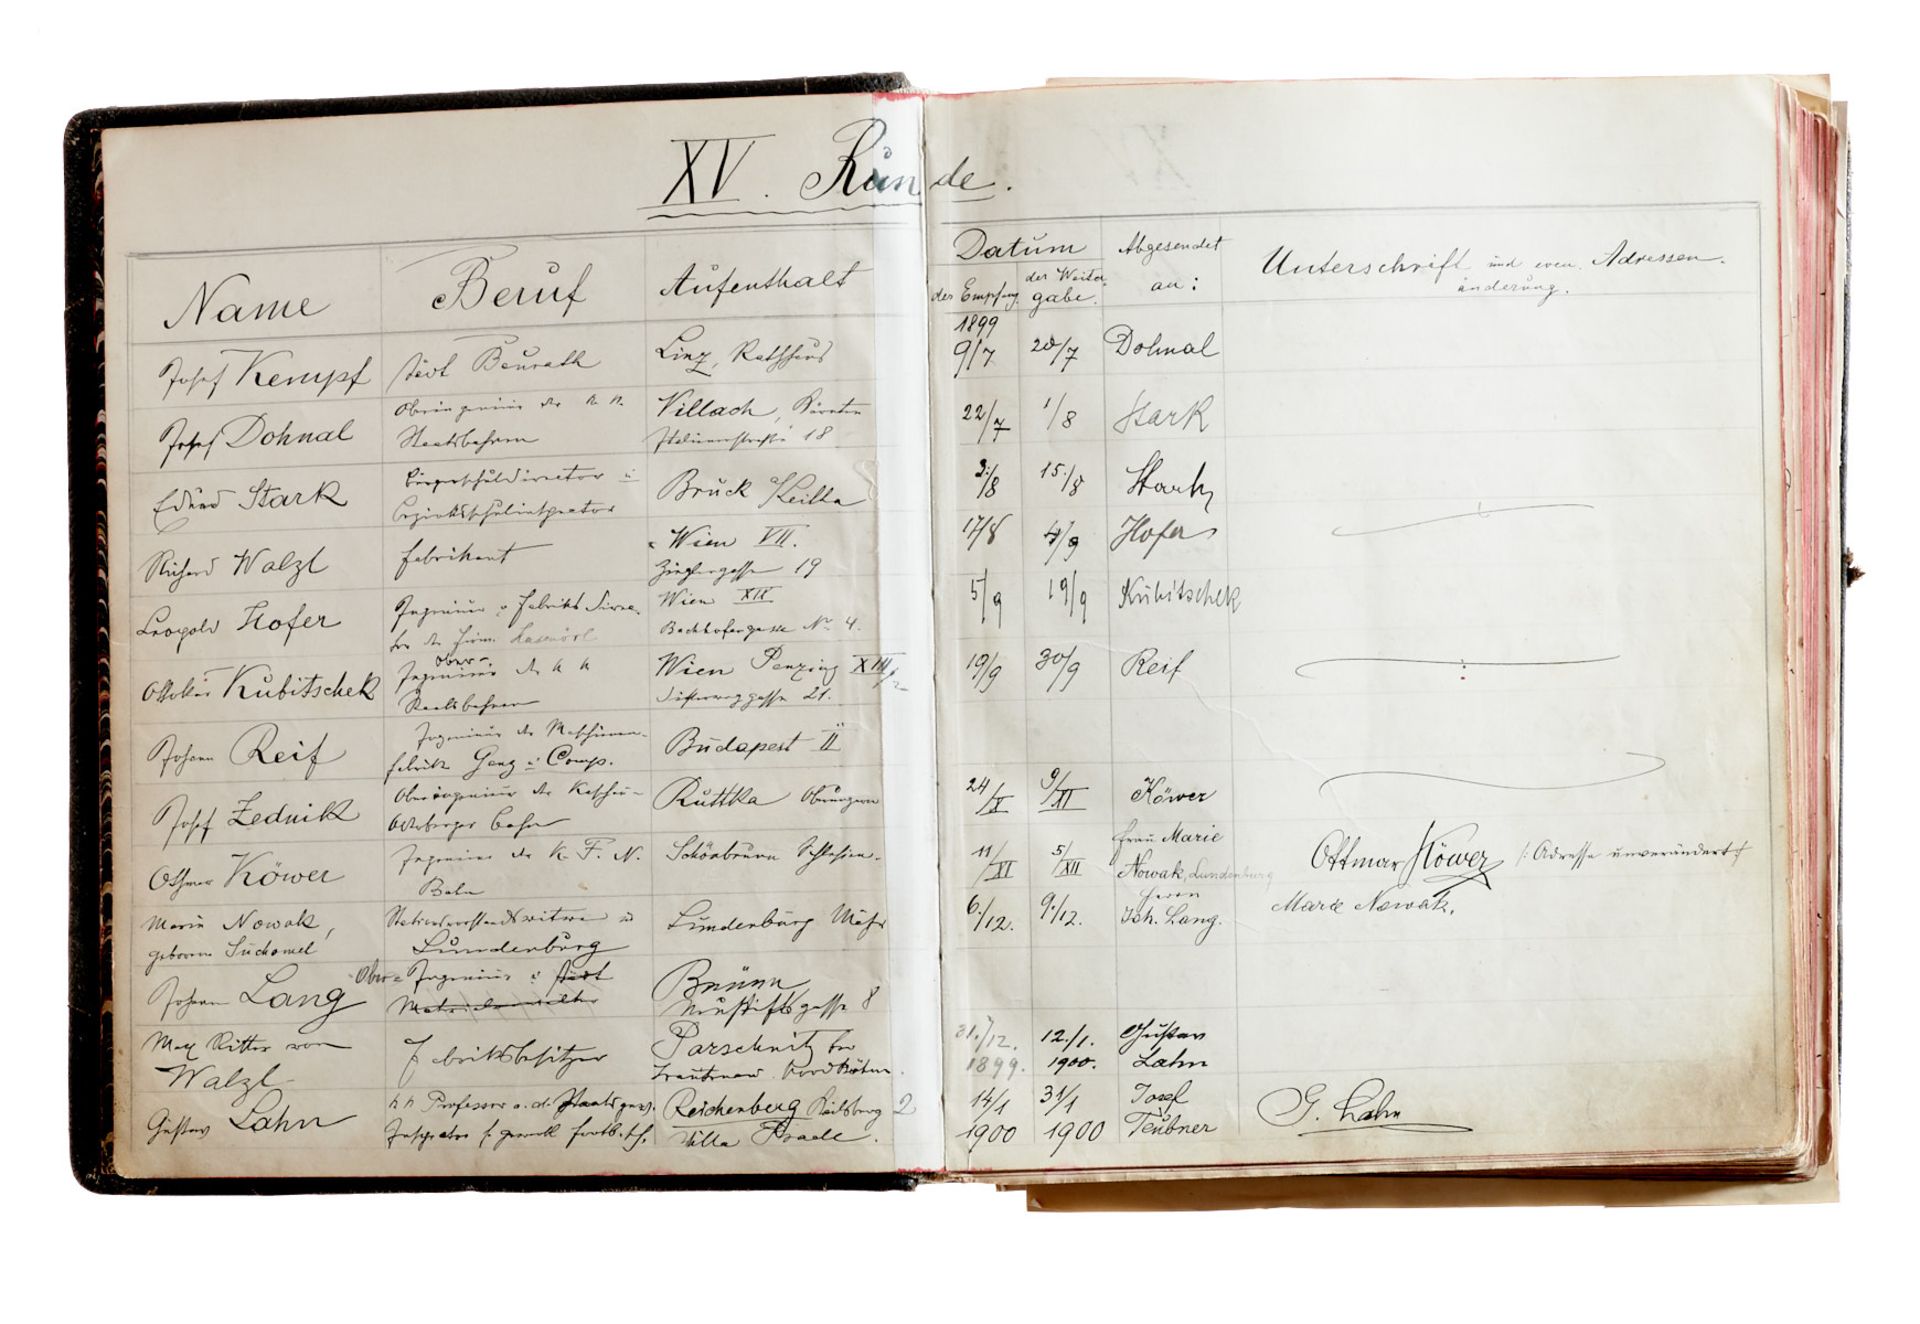 XV. Runde.
Name
Beruf
Aufenthalt
Datum
des Empfang.
der Weiter-
gabe.
Abgesendet
an:
Unterschrift und even. Adressen-
änderung.
Josef Kempf
städt Baurath
Linz, Rathhaus
1899
9/7
20/7
Dohnal
Josef Dohnal
Oberingenieur der k. k.
Staatsbahnen
Villach, Kärnten
Italienerstraße 18
22/7
1/8
Stark
Eduard Stark
Bürgerschuldirector u
Bezirksschulinspector
Bruck a/Leitha
2/8
15/8
Stark
Richard Walzl
Fabrikant
Wien VII.
Zieglergasse 19
17/8
4/9
Hofer
Leopold Hofer
Ingenieur u Fabriks Direc-
tor der Firma
Wien XII
Bachhofergasse No 4.
5/9
19/9
Kubitschek
Ottokar Kubitschek
Ober-
Ingenieur der k k
Staatsbahnen
Wien Penzing XIII/2
Disterweggasse 21.
19/9
30/9
Reif
Johann Reif
Ingenieur der Maschinen-
fabrik Ganz u Comp.
Budapest II
Josef Zednik
Oberingenieur der Kaschau-
Oderberger Bahn
Ruttka Oberungarn
24/X
9/XI
Köwer
Othmar Köwer
Ingenieur der K. F. N.
Bahn
Schönbrunn Schlesien.
11/XI
5/XII
Frau Marie
Nowak, Lundenburg
Ottmar Köwer /: Adresse unverändert :/
Marie Nowak,
geborene Suchomel
Stationsvorstandswitwe in
Lundenburg
Lundenburg Mähr
6./12.
9./12.
Herrn
Joh. Lang.
Marie Nowak.
Johann Lang
Ober-Ingenieur u städt
Brünn
Neustiftgasse 8
Max Ritter von
Walzl
Fabriksbesitzer
Parschnitz bei
Trautenau. Nord Böhm.
31./12.
1899.
12./1.
1900.
Gustav
Lahn
Gustav Lahn
k k Professor a. d. Staatsgew.
Inspector f. gewerbl. Fortb. sch.
Reichenberg 2
Villa Praale.
14/1
1900
31/1
1900
Josef
Teubner
G. Lahn